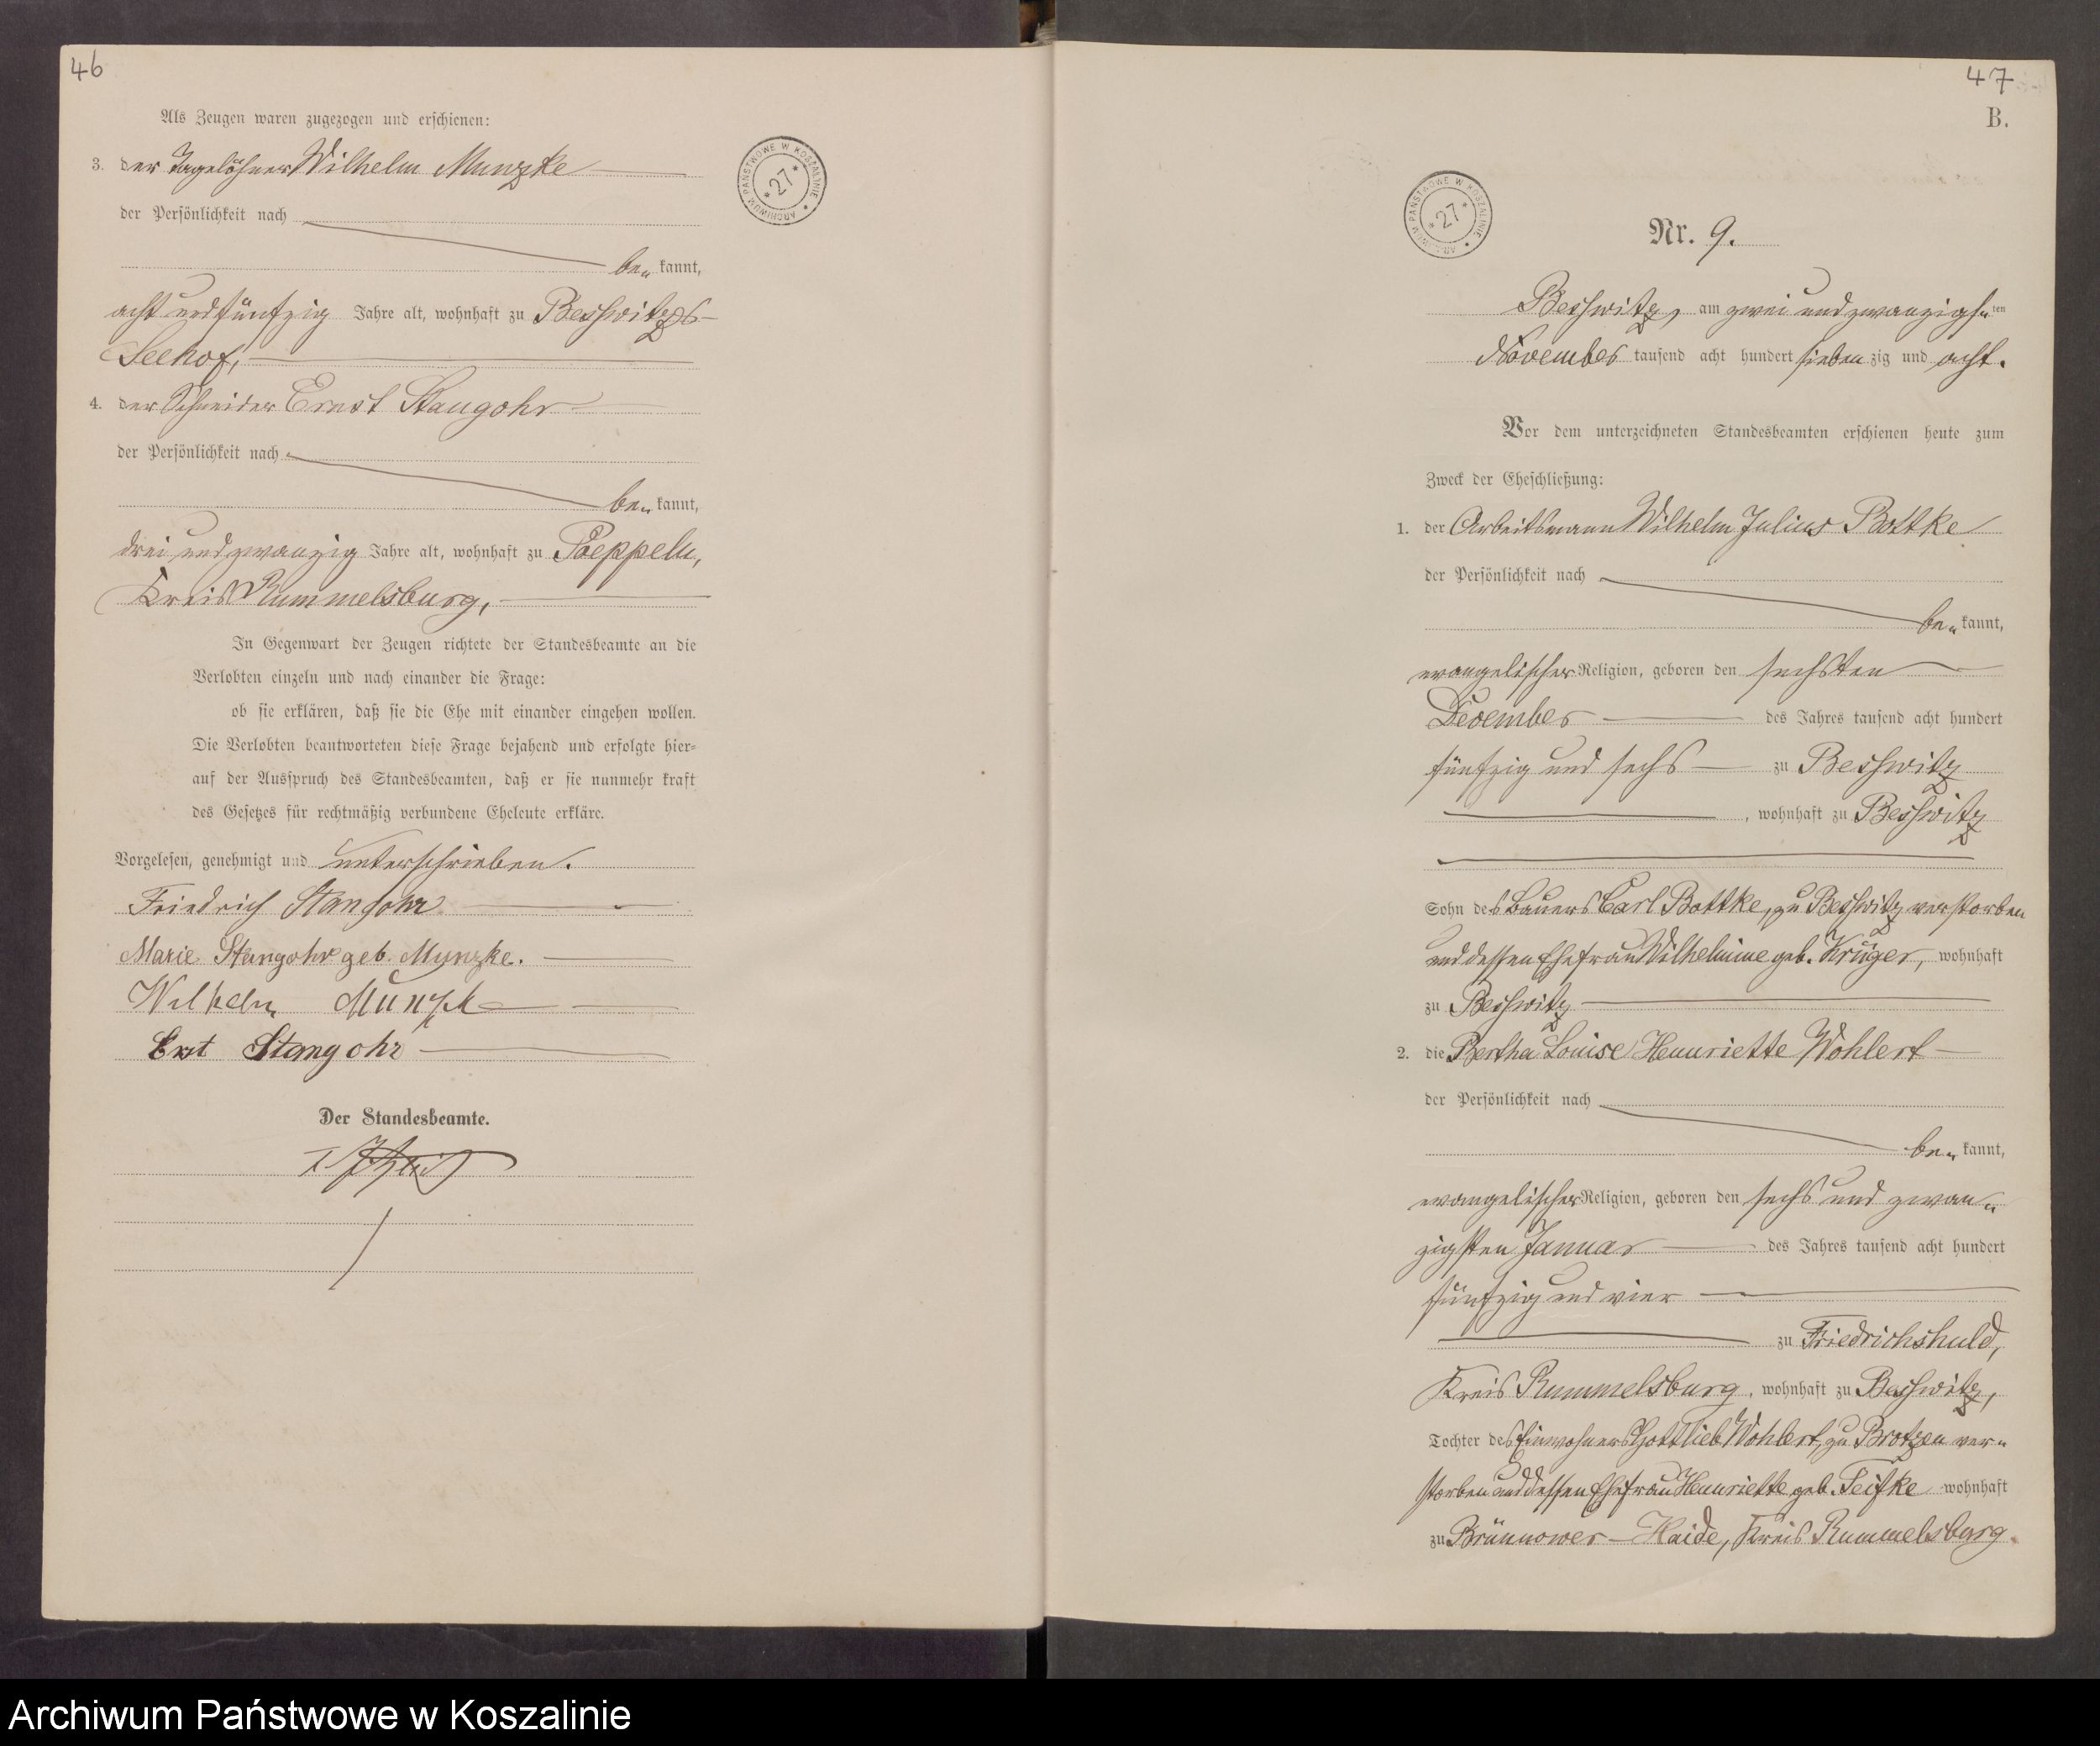 46
Als Zeugen waren zugezogen und erschienen:
3. der Tagelöhner Wilhelm Munzke
der Persönlichkeit nach
be„ kannt,
acht und fünfzig Jahre alt, wohnhaft zu Besswitz-
Seehof,
4. der Schneider Ernst Stangohr
der Persönlichkeit nach
be„ kannt,
drei und zwanzig Jahre alt, wohnhaft zu Poeppeln,
Kreis Rummelsburg,
In Gegenwart der Zeugen richtete der Standesbeamte an die
Verlobten einzeln und nach einander die Frage:
ob sie erklären, daß sie die Ehe mit einander eingehen wollen.
Die Verlobten beantworteten diese Frage bejahend und erfolgte hier=
auf der Ausspruch des Standesbeamten, daß er sie nunmehr kraft
des Gesetzes für rechtmäßig verbundene Eheleute erkläre.
Vorgelesen, genehmigt und unterschrieben.
Friedrich Stangohr
Marie Stangohr geb. Munzke.
Wilhelm Munzke
Ernst Stangohr
Der Standesbeamte.
ARCHIWUM PAŃSTWOWE W KOSZALINIE * 27 *
47
B.
ARCHIWUM PAŃSTWOWE W KOSZALINIE * 27 *
Nr. 9.
Besswitz, am zwei und zwanzigs„ten
November tausend acht hundert siebenzig und acht.
Vor dem unterzeichneten Standesbeamten erschienen heute zum
Zweck der Eheschließung:
1. der Arbeitsmann Wilhelm Julius Bottke
der Persönlichkeit nach
be„ kannt,
evangelischer Religion, geboren den sechsten
December des Jahres tausend acht hundert
fünfzig und sechs zu Besswitz
, wohnhaft zu Besswitz
Sohn des Bauers Carl Bottke, zu Besswitz verstorben
und dessen Ehefrau Wilhelmine geb. Krüger, wohnhaft
zu Besswitz
2. die Bertha Louise Hennriette Wohlert
der Persönlichkeit nach
be„ kannt,
evangelischer Religion, geboren den sechs und zwan„
zigsten Januar des Jahres tausend acht hundert
fünfzig und vier
zu Friedrichshuld,
Kreis Rummelsburg, wohnhaft zu Besswitz,
Tochter des Einwohners Gottlieb Wohlert, zu Brotzen ver„
storben und dessen Ehefrau Hennriette geb. Teifke wohnhaft
zu Brünnower-Haide, Kreis Rummelsburg.
Archiwum Państwowe w Koszalinie